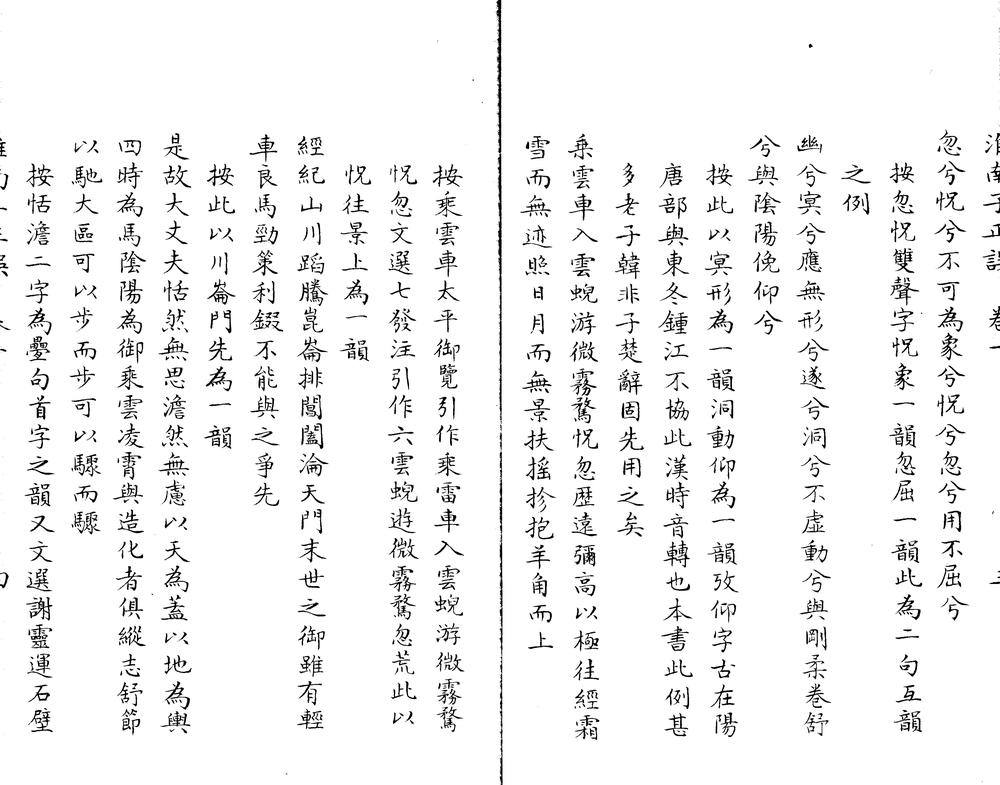 淮南子正誤　卷一
忽兮怳兮不可為象兮怳兮忽兮用不屈兮
按忽怳雙聲字怳象一韻忽屈一韻此為二句互韻
之例
幽兮冥兮應無形兮遂兮洞兮不虛動兮與剛柔卷舒
兮與陰陽俛仰兮
按此以冥形為一韻洞動仰為一韻攷仰字古在陽
唐部與東冬鍾江不協此漢時音轉也本書此例甚
多老子韓非子楚辭固先用之矣
乘雲車入雲蜺游微霧騖怳忽歷遠彌高以極往經霜
雪而無迹照日月而無景扶搖抮抱羊角而上
按乘雲車太平御覽引作乘雷車入雲蜺游微霧騖
怳忽文選七發注引作六雲蜺遊微霧騖忽荒此以
怳往景上為一韻
經紀山川蹈騰崑崙排閶闔淪天門末世之御雖有輕
車良馬勁策利錣不能與之爭先
按此以川崙門先為一韻
是故大丈夫恬然無思澹然無慮以天為蓋以地為輿
四時為馬陰陽為御乘雲凌霄與造化者俱縱志舒節
以馳大區可以步而步可以驟而驟
按恬澹二字為疊句首字之韻又文選謝靈運石壁